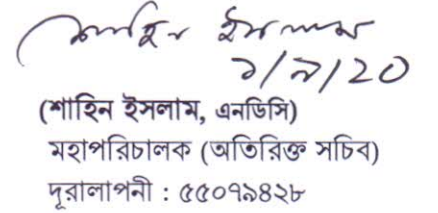 শাহিন ইসলাম
১/৯/২০
(শাহিন ইসলাম, এনডিসি)
মহাপরিচালক (অতিরিক্ত সচিব)
দূরালাপনী : ৫৫০৭৯৪২৮